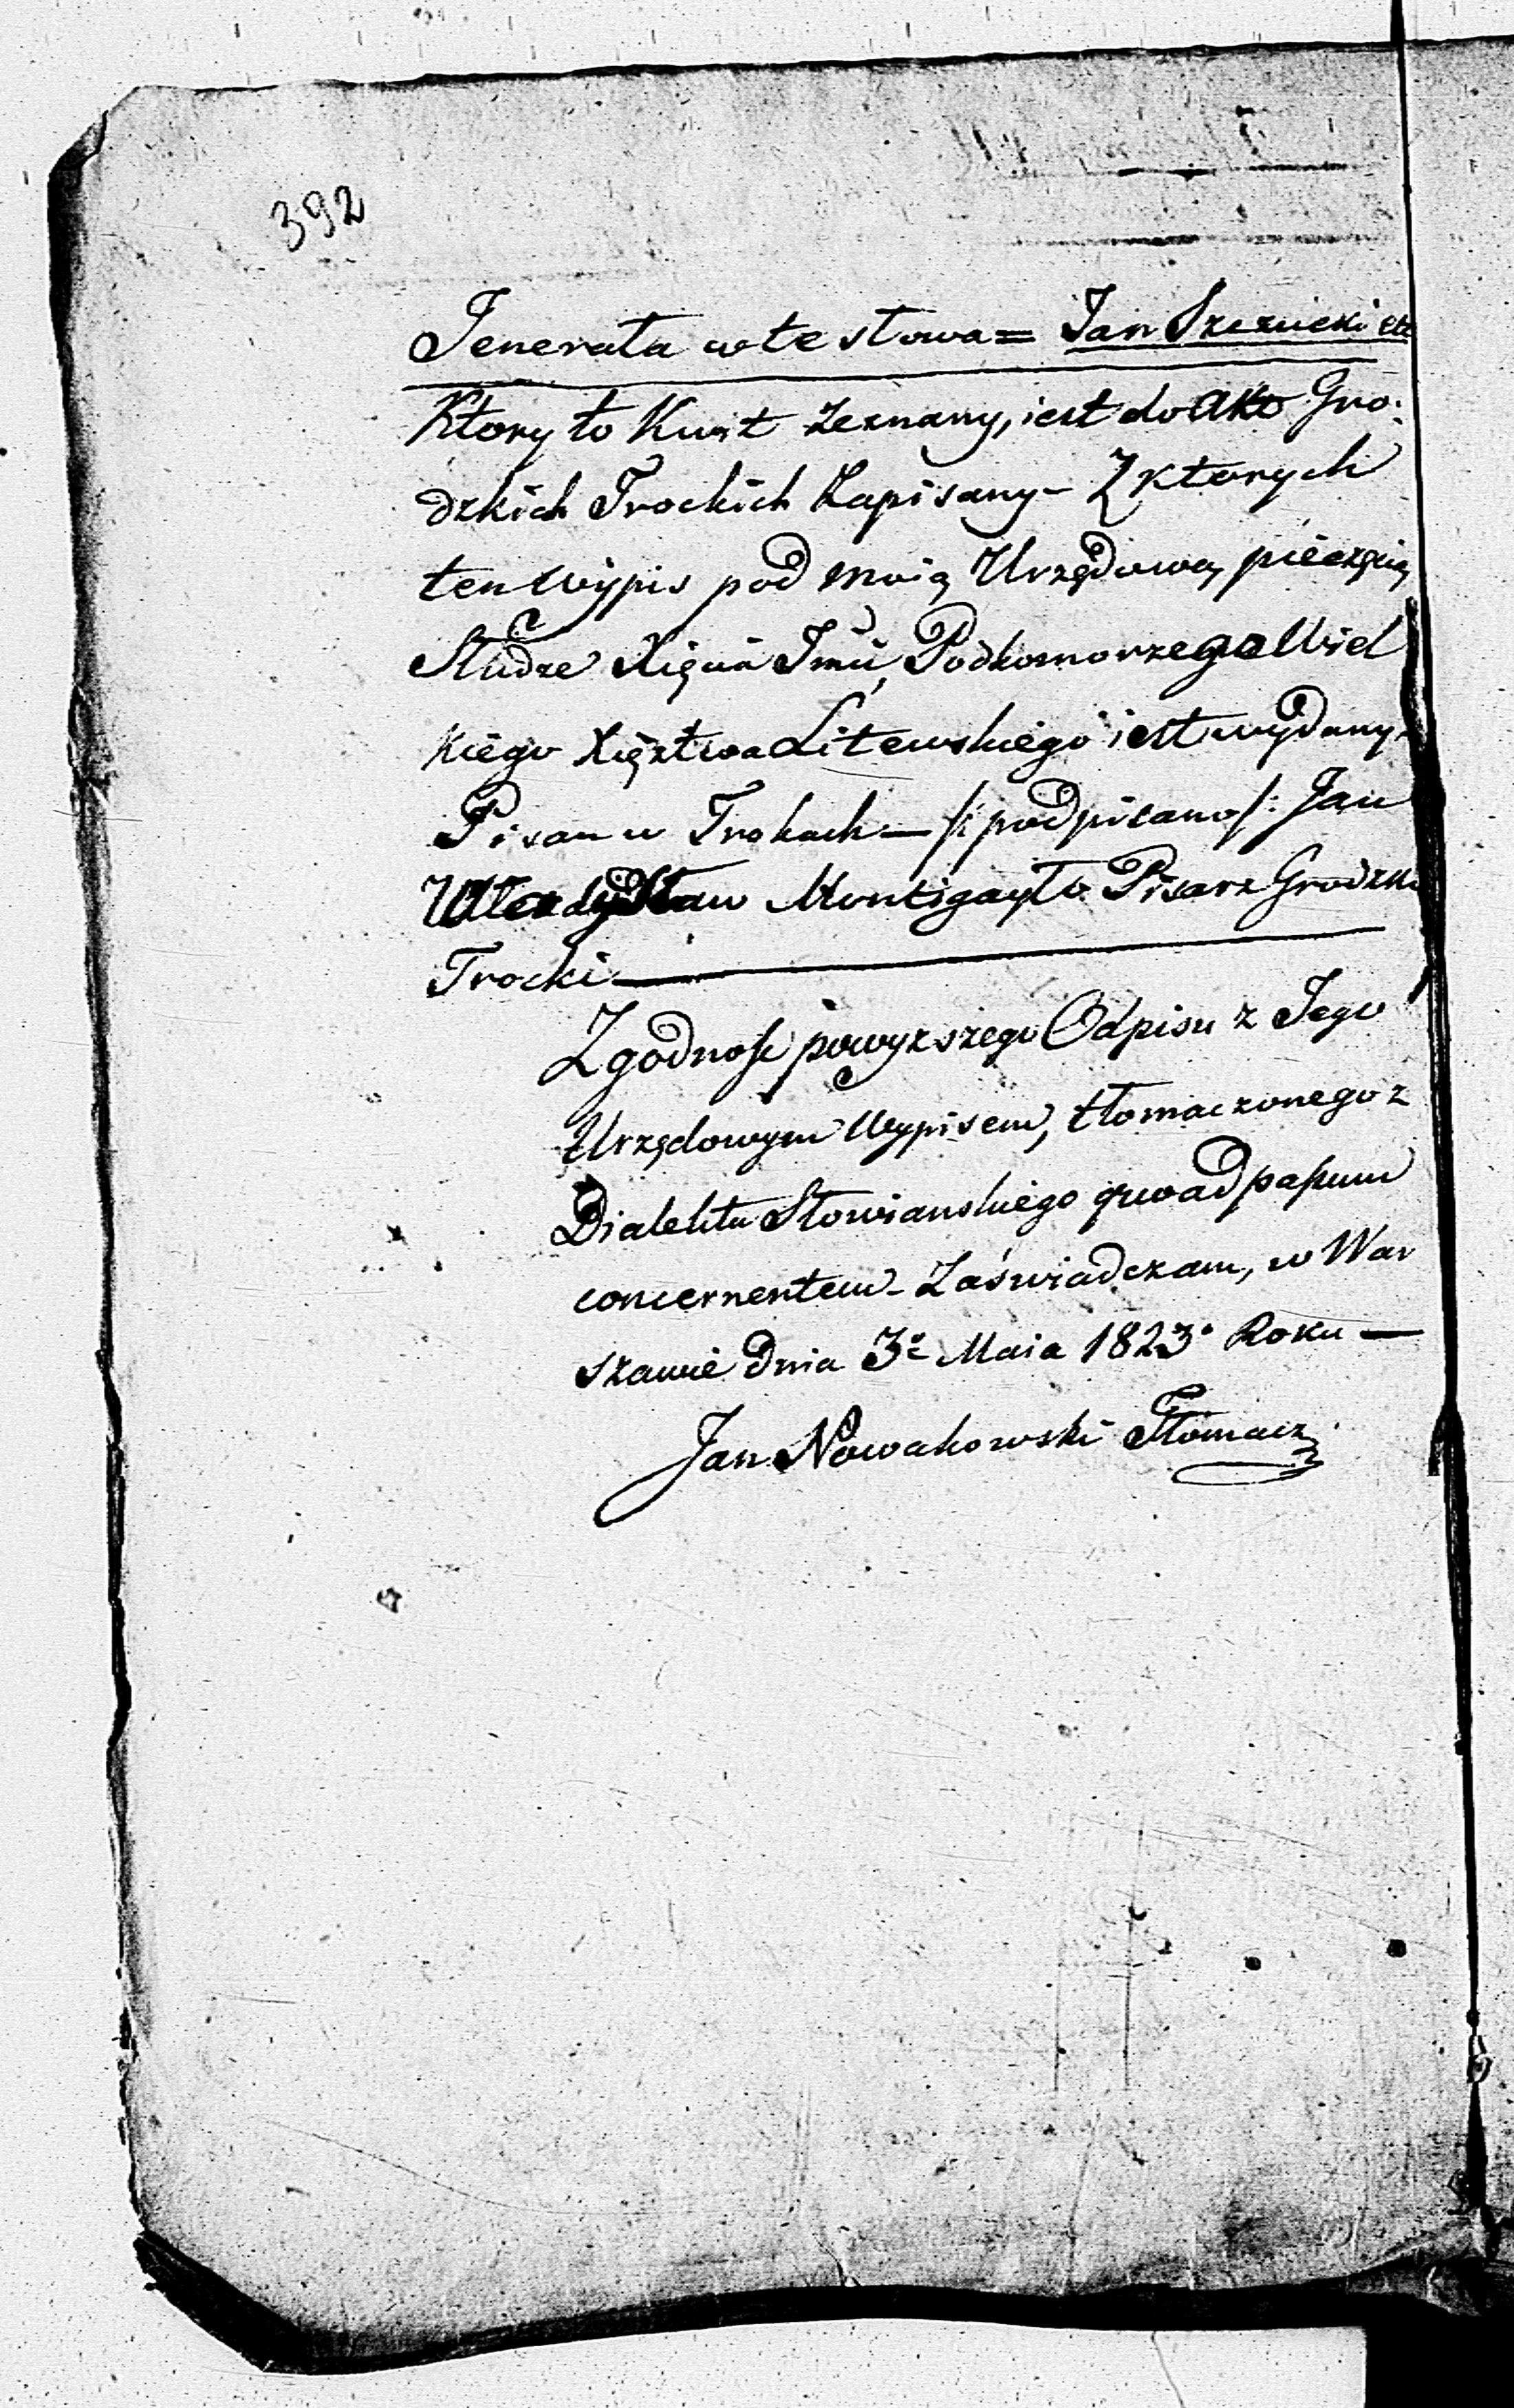 392
Jenerała w te słowa = Jan Szcznicki etc
Ktory to Kwit zeznany, iest do Akt Gro:
dzkich Trockich Zapisany – Z ktorych
ten Wypis pod moią Urzędową pieczęcią
Słudze Xięcia Jmci Podkomorzego Wiel
kiego Xięztwa Litewskiego iest wydany.
Pisan w Trokach – /: podpisano /: Jan
Władysław Montigayło Pisarz Grodzki
Trocki
Zgodność powyzszego Odpisu z Jego
Urzędowym Wypisem, tłomaczonego z
Dialektu Słowianskiego quoad passum
concernentem – Zaświadczam, w War
szawie dnia 3º Maia 1823º Roku —
Jan Nowakowski Tłomacz